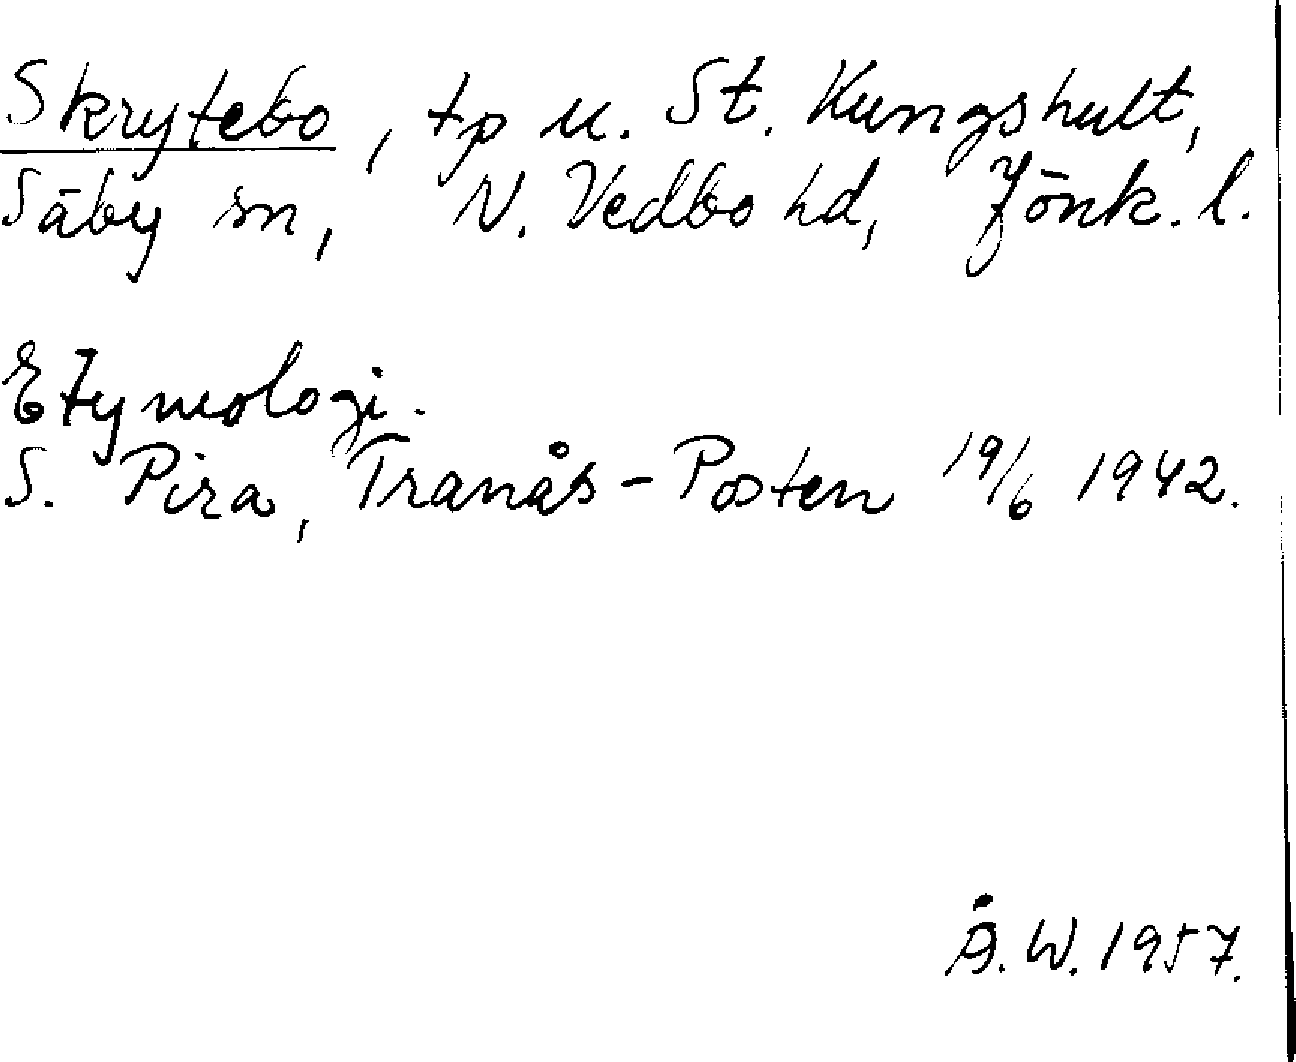 Skrytebo, tp u. St. Kungshult,
Säby sn, N. Vedbo hd, Jönk. l.
Etymologi.
S. Pira, Tranås-Posten 19/6 1942.
Å.W. 1957.